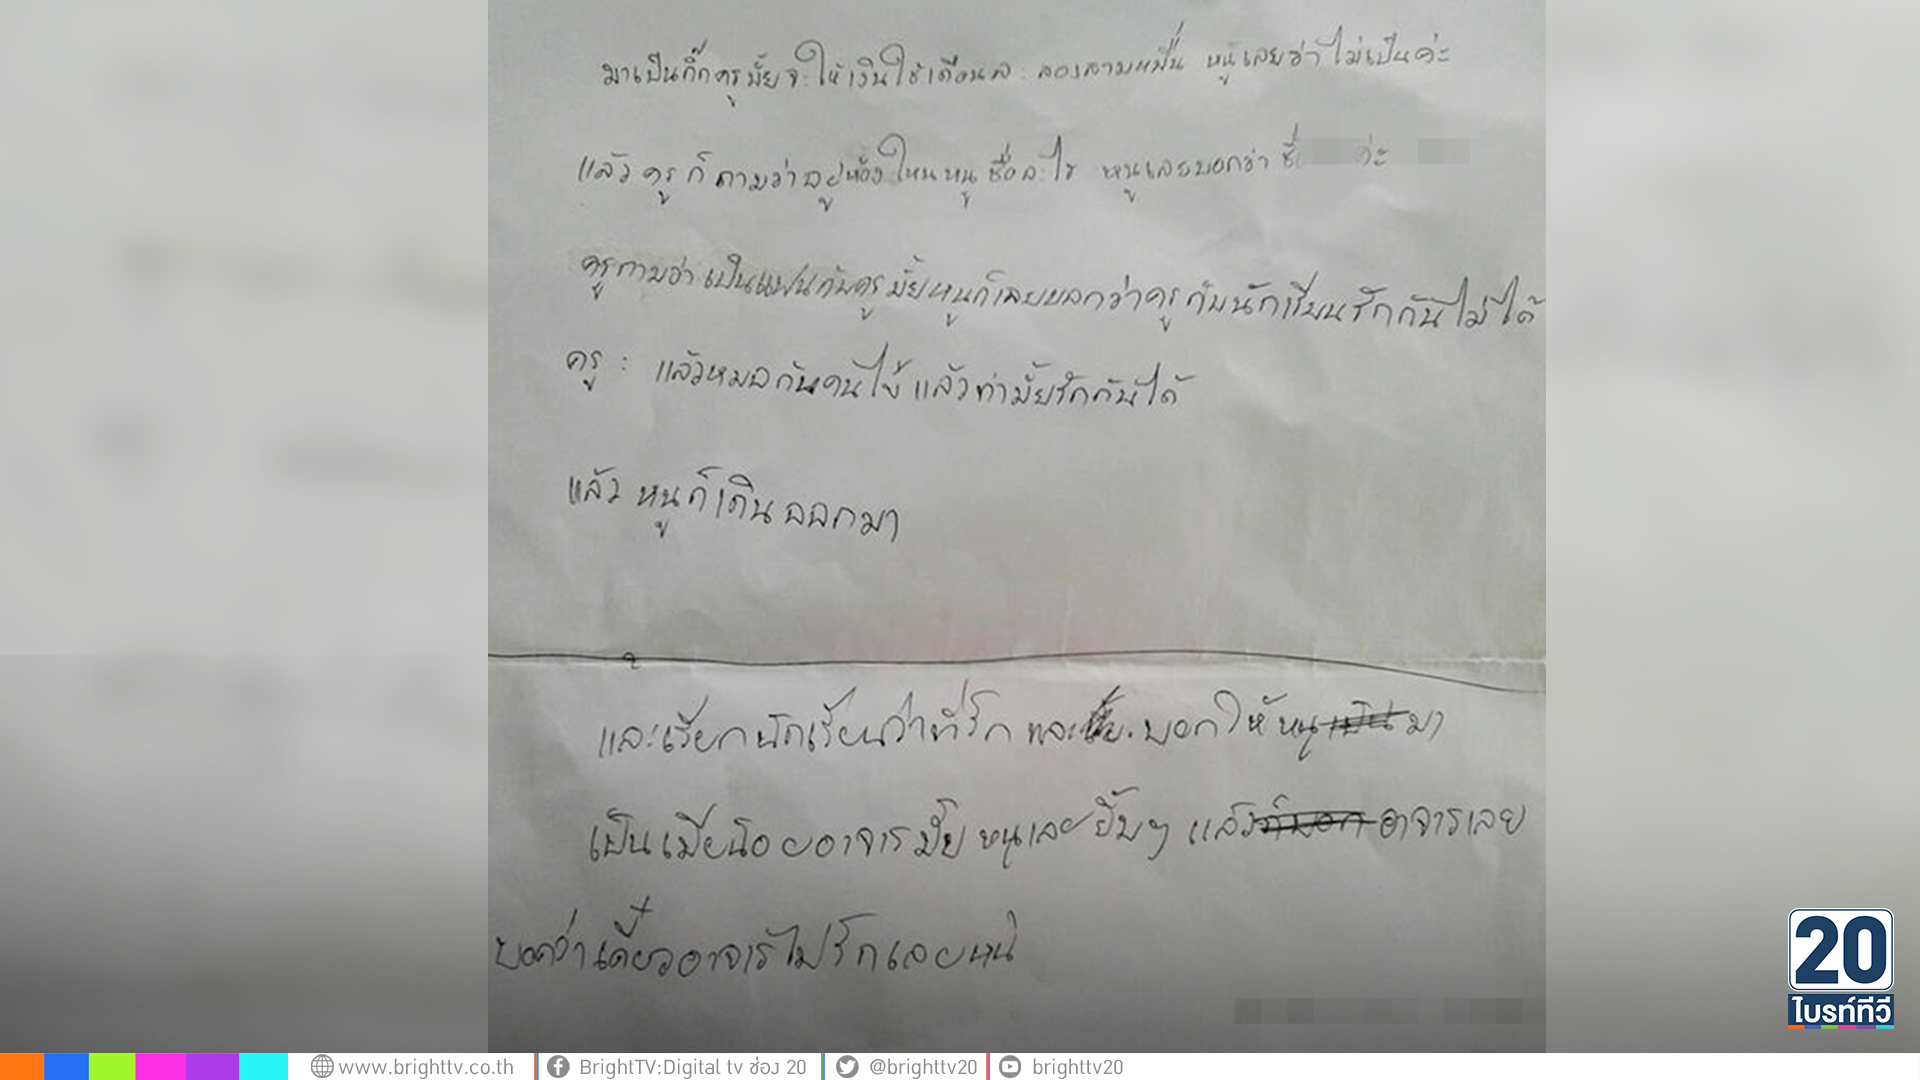 มาเป็นกิ๊กครูมั้ยจะให้เงินใช้เดือนละ สองสามหมื่น หนูเลยว่าไม่เป็นค่ะ
แล้วครูก็ถามว่าอยู่ห้องไหนหนูชื่ออะไร หนูเลยบอกว่า ชื่อ ค่ะ
ครูถามว่าเป็นแฟนกับครูมั้ยหนูก็เลยบอกว่าครูกับนักเรียนรักกันไม่ได้
ครู : แล้วหมอกับคนไข้แล้วทำมั้ยรักกันได้
แล้วหนูก็เดินออกมา
และเรียกนักเรียนว่าที่รัก และ บอกให้หนูเป็นมา
เป็นเมียน้อยอาจารมั้ย หนูเลยยิ้มๆ แล้วก็บอกอาจารเลย
บอกว่าเดี๋ยวอาจารไม่รักเลยหนิ
20
ไบรท์ทีวี
www.brighttv.co.th
BrightTV:Digital tv ช่อง 20
@brighttv20
brighttv20